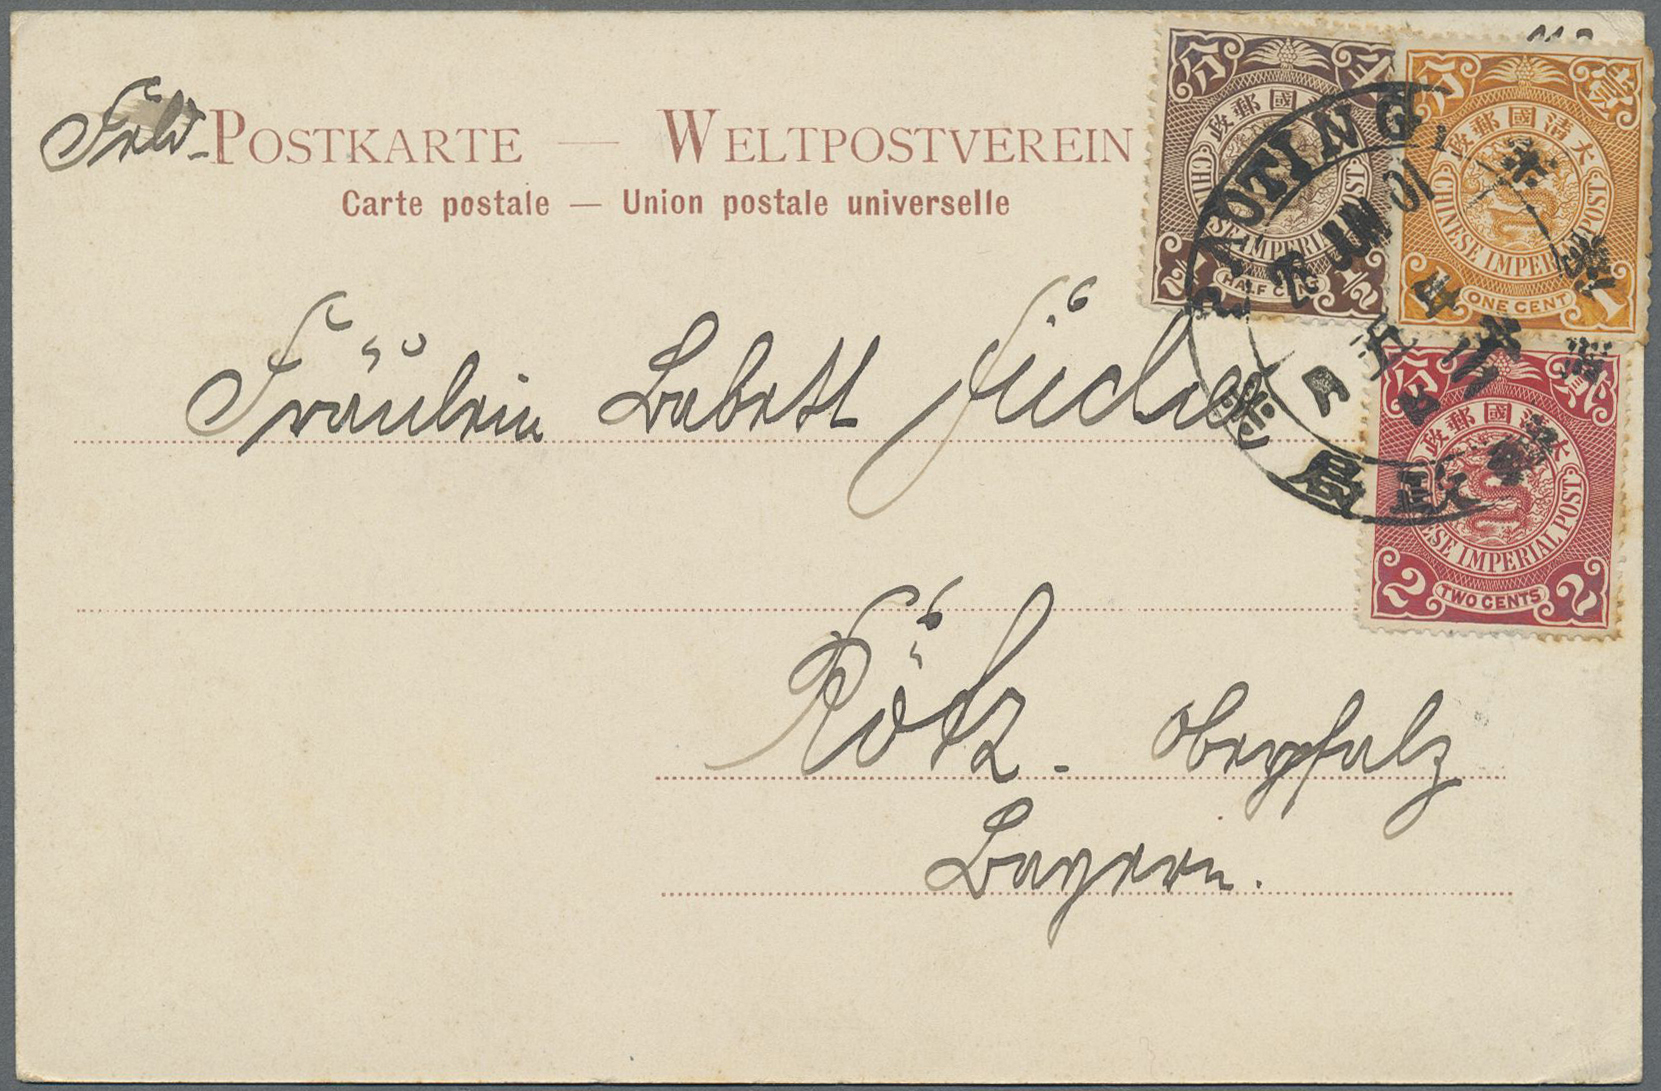 Feld-
POSTKARTE — WELTPOSTVEREIN
Carte postale — Union postale universelle
Fräulein Babett
Rötz. Oberpfalz
Bayern.
大清國郵政
CHINESE IMPERIAL POST
½ HALF CENT ½
大清國郵政
CHINESE IMPERIAL POST
ONE CENT 1
大清國郵政
CHINESE IMPERIAL POST
2 TWO CENTS 2
PAOTING
JUN 01
月 五 年
政局